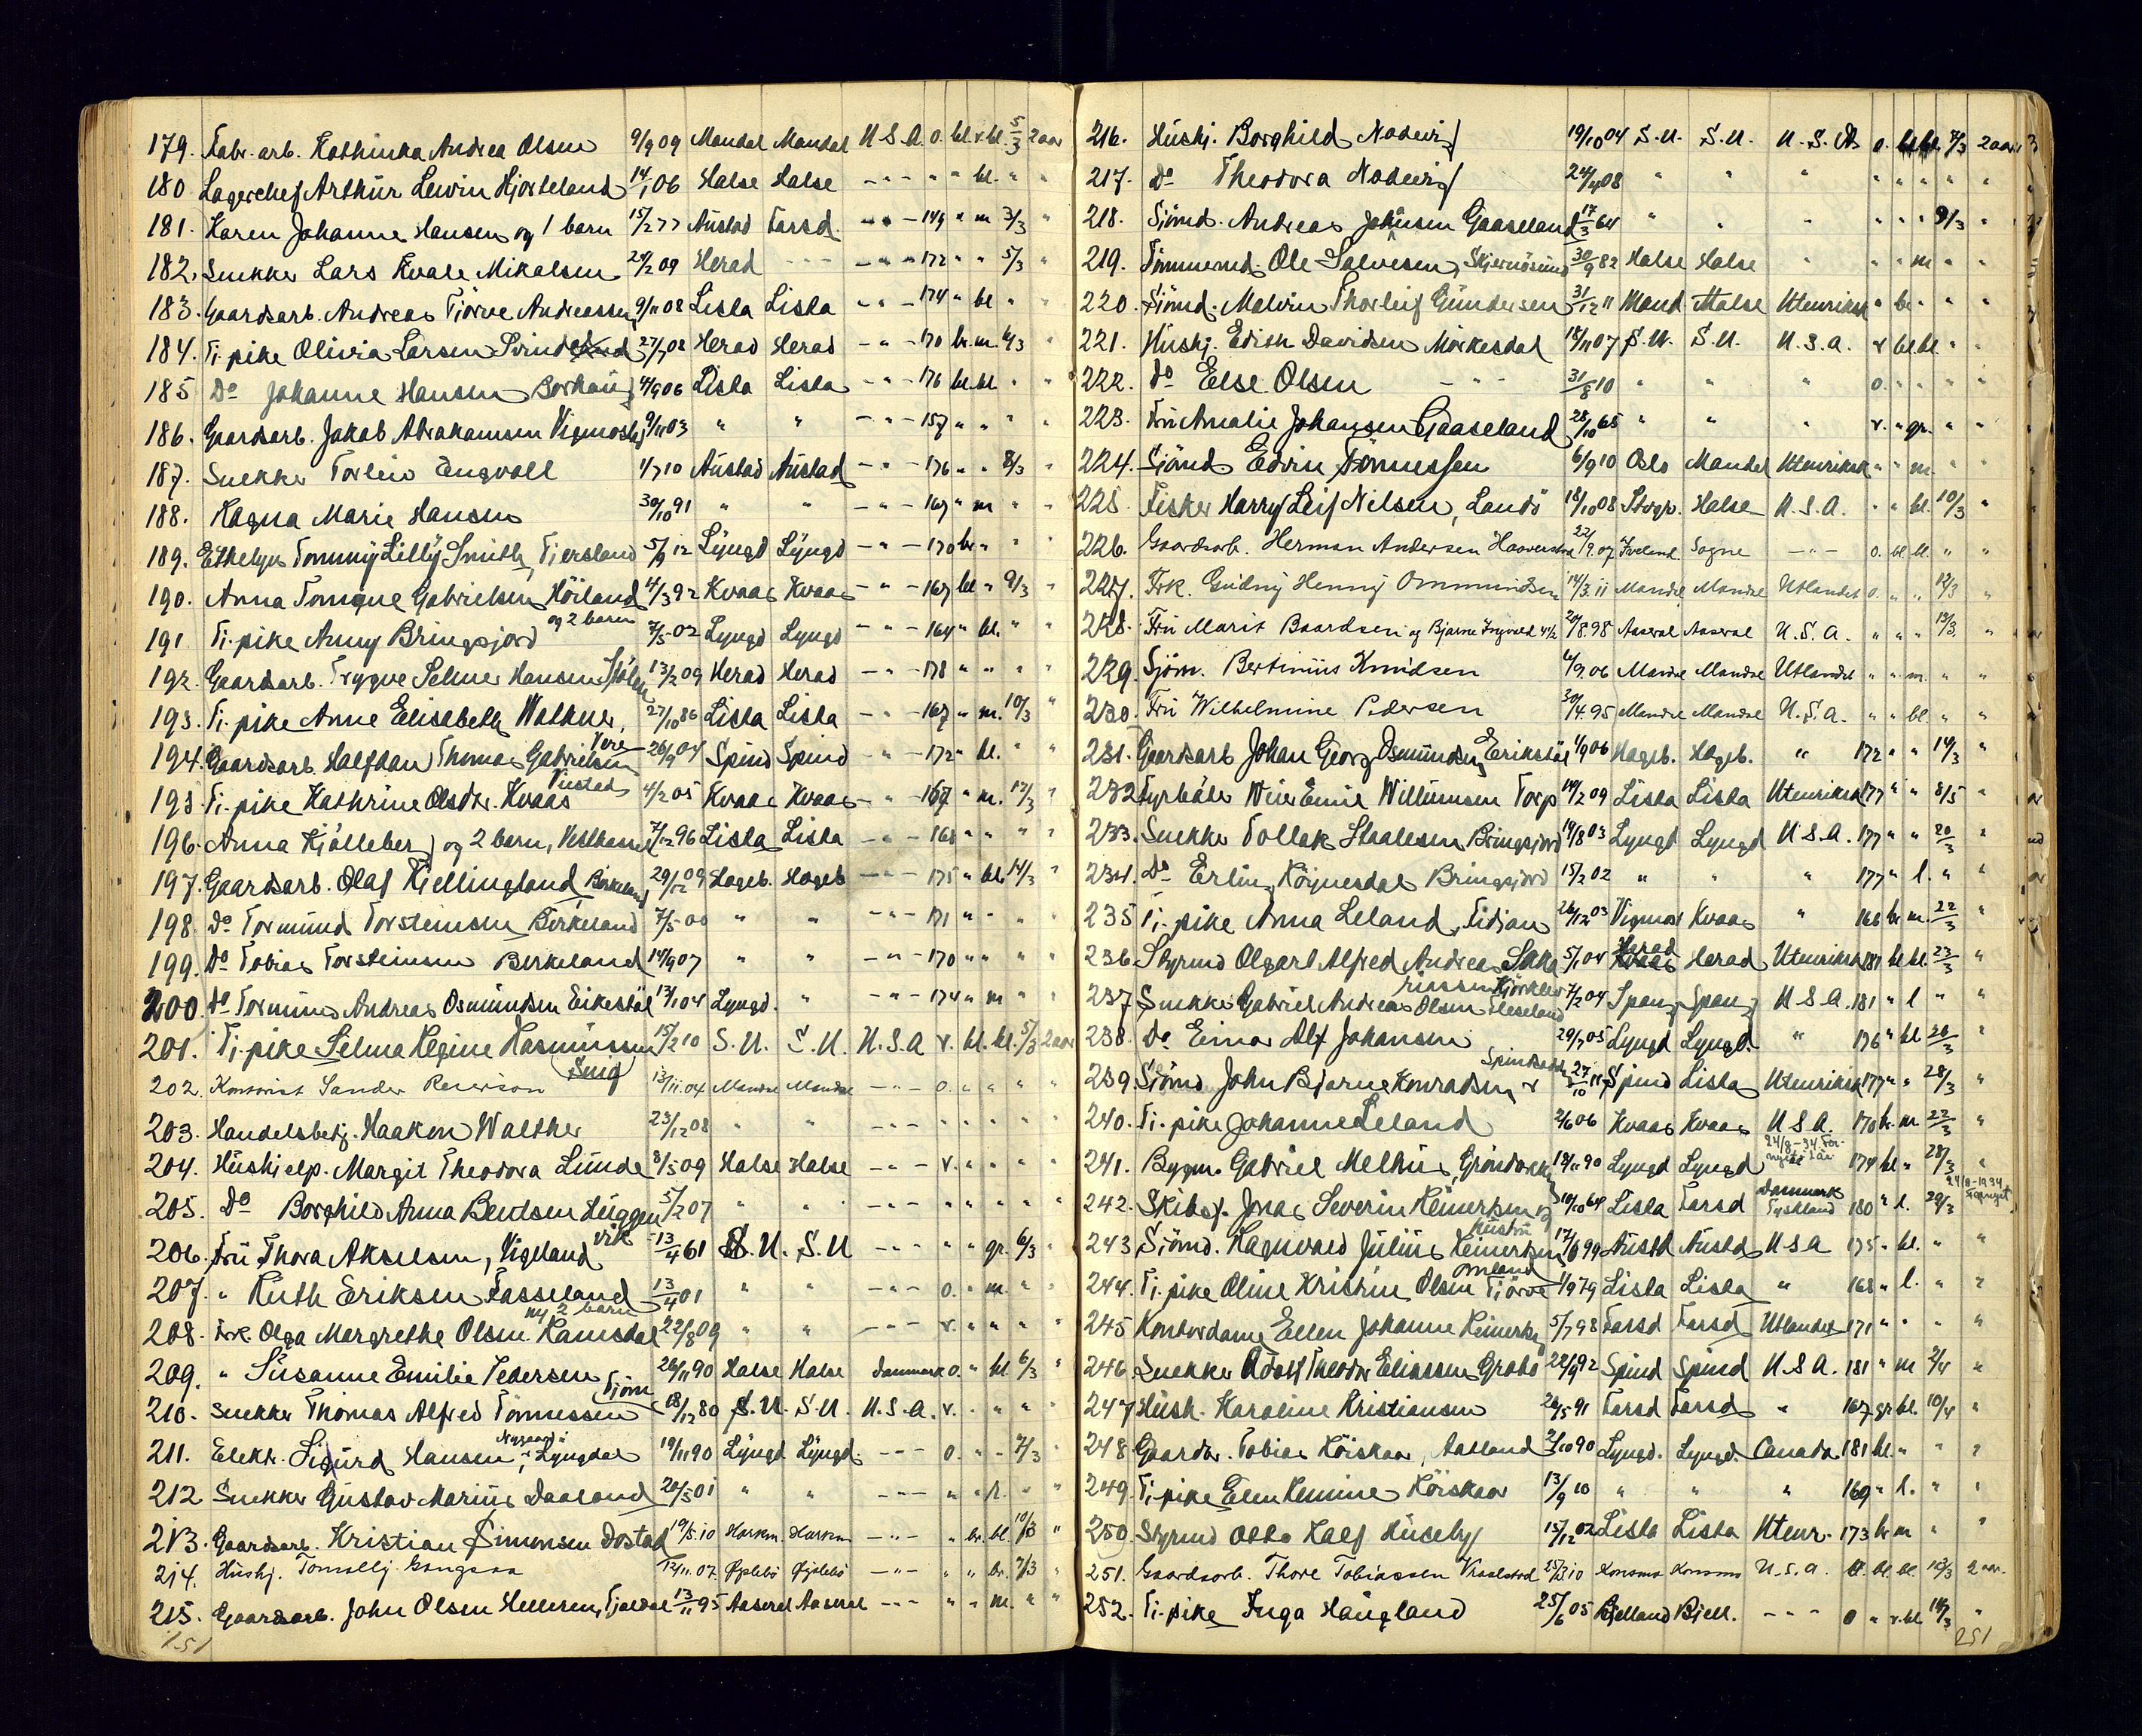 179. Fabr. arb. Kathinka Andrea Olsen 9/9 09 Mandal Mandal U.S.A. o. bl. v. bl. 5/3 2 aar
180 Lagerchef Arthur Lewin Hjorteland 14/1 06 Halse Halse - " - " " bl. " "
181. Karen Johanne Hansen og 1 barn 15/2 77 Austad Farsd. - " - 149 " m 7/3 "
182. Snekker Lars Kvale Mikalsen 29/2 09 Herad - " - - " - 172 " " 5/3 "
183. Gaardsarb. Andreas Tjörve Andreassen 9/11 08 Lista Lista - " - 174 " bl " "
184. Tj. pike Olivia Larsen Svindland 27/7 08 Herad Herad - " - 170 br. m. 6/3 "
185 Do Johanne Hansen Borhaug 4/9 06 Lista Lista - " - 176 bl. bl. " "
186. Gaardsarb. Jakob Abrahamsen Vigmostad 9/11 03 " " - " - 157 " " " "
187. Snekker Torleiv Engvoll 1/7 10 Austad Austad - " - 176 " " 8/3 "
188. Ragna Marie Hansen 30/10 91 " " - " - 167 " m " "
189. Ethelyn Tommy Lilly Smith, Tjersland 5/9 12 Lyngd Lyngd - " - 170 br " " "
190. Anna Tomine Gabrielsen Höiland og 2 barn 4/3 92 Kvaas Kvaas - " - 167 bl " 9/3 "
191 Tj. pike Anny Bringsjord 7/5 02 Lyngd Lyngd - " - 164 " bl. " "
192. Gaardsarb. Trygve Selmer Hansen Stölen 13/2 09 Herad Herad - " - 178 " " " "
193. Tj. pike Anne Elisabeth Wathne, Vere 27/10 86 Lista Lista - " - 167 " m. 10/3 "
194. Gaardsarb. Halfdan Thomas Gabrielsen 26/9 07 Spind Spind - " - 172 " bl. " "
195 Tj. pike Kathrine Olsdtr. Kvaas 4/2 05 Kvaas Kvaas - " - 167 " m. 12/3 "
196. Anna Kjölleberg og 2 barn, Vesthassel 7/12 96 Lista Lista - " - 168 " " " "
197. Gaardsarb. Olaf Kjellingland Birkeland 29/12 09 Hageb. Hageb - " - 175 " bl. 14/3 "
198. Do Tormund Torsteinsen Birkeland 7/5 00 " " - " - 171 " " " "
199. Do Tobias Torsteinsen Birkeland 14/9 07 " " - " - 170 " " " "
200. Do Tormund Andreas Osmundsen Eikestöl 13/1 04 Lyngd. " - " - 174 " m " "
201. Tj. pike Selma Regine Rasmussen Snig 15/2 10 S.U. S.U. U.S.A v. bl. bl. 5/3 2 aar
202. Kontorist Sander Reierson 13/11.04 Mandal Mandal - " - o. " " " "
203. Handelsbetj. Haakon Walther 23/12 08 " " - " - " " " " "
204. Hushjelp. Margit Theodora Lunde 8/5 09 Halse Halse - " - v. " " " "
205. Do Borghild Anna Bentsen Huggenvik 5/2 07 " " - " - " " " " "
206. Fru Thora Akselsen, Vigeland 13/4 61 S.U. S.U - " - " " gr. 6/3 "
207. " Ruth Eriksen Fasseland 13/4 01 " " - " - o. " m. " "
208. Frk. Olga Margrethe Olsen Ramsdal 22/8 09 " " - " - v. " " " "
209. " Susanne Emilie Pedersen 26/11 90 Halse Halse Danmark o. " bl 6/3 "
210. Snekker Thomas Alfred Tönnessen Tjöm 18/12 80 S.U. S.U. U.S.A. v. " " " "
211. Elektr. Sigurd Hansen, Nygaard Lyngdal 19/11 90 Lyngd Lyngd. - " - o. " " 7/3
212 Snekker Gustav Marius Daaland 20/5 01 " " - " - " " " "
213. Gaardsarb. Kristian Simonsen Dostad 19/5.10 Harkm Harkm - " - " br. bl. 10/3 "
214. Hushj. Tomelly Gangsaa 12/11.07. Øyslebö Øyslebö - " - " " br. 7/3 "
215. Gaardsarb. John Olsen Helleren, Fjordal 13/11 95 Aaseral Aaseral - " - " " m. " "
151
216. Hushj. Borghild Nodwig 19/10 04 S.U. S.U. U.S.A o. bl. bl. 7/3 2 aar
217. Do Theodora Nodwig 24/4 08 " " " " " " " "
218. Sjömd. Andreas Johansen Gaaseland 17/3 64 " " " " " " 9/3 "
219. Tömmermd. Ole Salvesen, Skjernösund 30/9 82 Halse Halse " " " m " "
220. Sjömd. Melvin Thorleif Gundersen 31/12 11 Mand Halse Utenriks " br " " "
221. Hushj. Edith Davidsen Mörkesdal 18/11 07 S.U. S.U. U.S.A. v bl bl. " "
222. Do Else Olsen - " - 31/8 10 " " " o. " " " "
223. Fru Amalie Johansen Gaaseland 28/10 65 " " " v. " gr. " "
224. Sjömd Edvin Tönnessen 6/9 10 Oslo Mandal Utenriks " " m. " "
225. Fisker Harry Leif Nilsen, Landö 18/10 08 Halse U.S.A. " " bl. 10/3 "
226. Gaardsarb. Herman Andersen 22/9.07 Iveland Sogne - " - o. bl bl. " "
227. Frk. Gudny Henny Ommundsen 14/3.11 Mandal Mandal Utlandet o. " " 12/3 "
228. Fru Marit Baardsen og Bjarne Ingvald 4 1/2 20/8.98 Aaseral Aaseral U.S.A. " " " 13/3. "
229. Sjöm. Bertinius Knudsen 4/9.06 Mandal Mandal Utlandet " " m. " "
230. Fru Wilhelmine Pedersen 30/4.95 Mandal Mandal U.S.A. " " bl. " "
231. Gaardsarb Johan Georg Osmundsen Erikstöl 1/9 06 Hageb. Hageb. " 172 " " 14/3 "
232 Fyrböter Weier Emil Willumsen Torp 14/2 09 Lista Lista Utenriks 177 " " 8/5 "
233. Snekker Tollak Staalesen Bringsjord 19/8 03 Lyngd Lyngd U.S.A. 177 " " 20/3 "
234. Do Erling Röynesdal Bringsjord 15/2 02 " " " 177 " l. " "
235 Tj. pike Anna Leland, Tidjan 26/12 03 Vigmos Kvaas " 166 br m. 22/3 "
236 Styrmd Olgart Alfred Andreas 5/1 04 Herad Herad Utenriks 181 bl bl. 23/3 "
237 Snekker Gabriel Andreas Olsen Fleseland 7/2 04 Spang. Spang U.S.A. 181 " l " "
238. Do Einar Alf Johansen 29/7 05 Lyngd Lyngd. " 176 " bl 26/3 "
239. Sjömd John Bjarne Konradsen 27/10 11 Spind Lista Utenriks 177 " " 28/3 "
240. Tj. pike Johanne Leland 2/6 06 Kvaas Kvaas U.S.A. 170 br. m. 22/3 "
241. Bygm. Gabriel Melhus, 19/11 90 Lyngd Lyngd 24/8-34 For- nyet 2 aar 174 bl " 28/3 "
242. Skibsf. Jonas Severin Reinertsen og hustru 10/10 64 Lista Farsd Danmark Tyskland 180 " l. 29/3 24/8-1934 Fornyet
243 Sjömd. Ragnvald Julius Reinertsen 17/8 99 Austd Austd U.S.A 175 " bl. " "
244. Tj. pike Oline Kristine Olsen Tjörve 1/9 79 Lista Lista " 168 " l. " "
245 Kontordame Ellen Johanne Reinertsen 5/7 98 Farsd Farsd Utlandet 171 " " " "
246. Snekker Adolf Theodor Eliassen 22/9 92 Spind Spind U.S.A. 181 " m 2/4 "
247 Hush. Karoline Kristiansen 26/5 91 Farsd Farsd " 167 gr bl. 10/4 "
248 Gaardbr. Tobias Röiskaar, Aatland 2/10 90 Lyngd. Lyngd. Canada 181 bl. " " "
249. Tj. pike Elen Remine Röiskaar 13/9 10 " " " 169 " l. " "
250. Styrmd Otto Ralf Huseby 15/12 02 Lista Lista Utenr. 173 br m " "
251. Gaardsarb. Thore Tobiassen 25/3 10 Konsmo Konsmo U.S.A. bl bl. 12/3 2 aar.
252. Tj. pike Inga Haugland 25/6 05 Bjelland Bjell. - " - o " v. bl 14/3 "
251